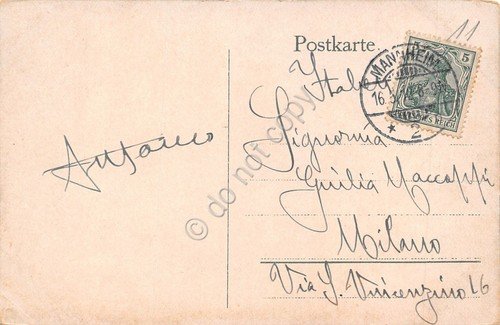 11
Postkarte.
MANNHEIM
5
16.3
* 2
Italia
Antonio
Signorina
Giulia Maccappi
Milano
Via S. Vincenzino 16
© do not copy